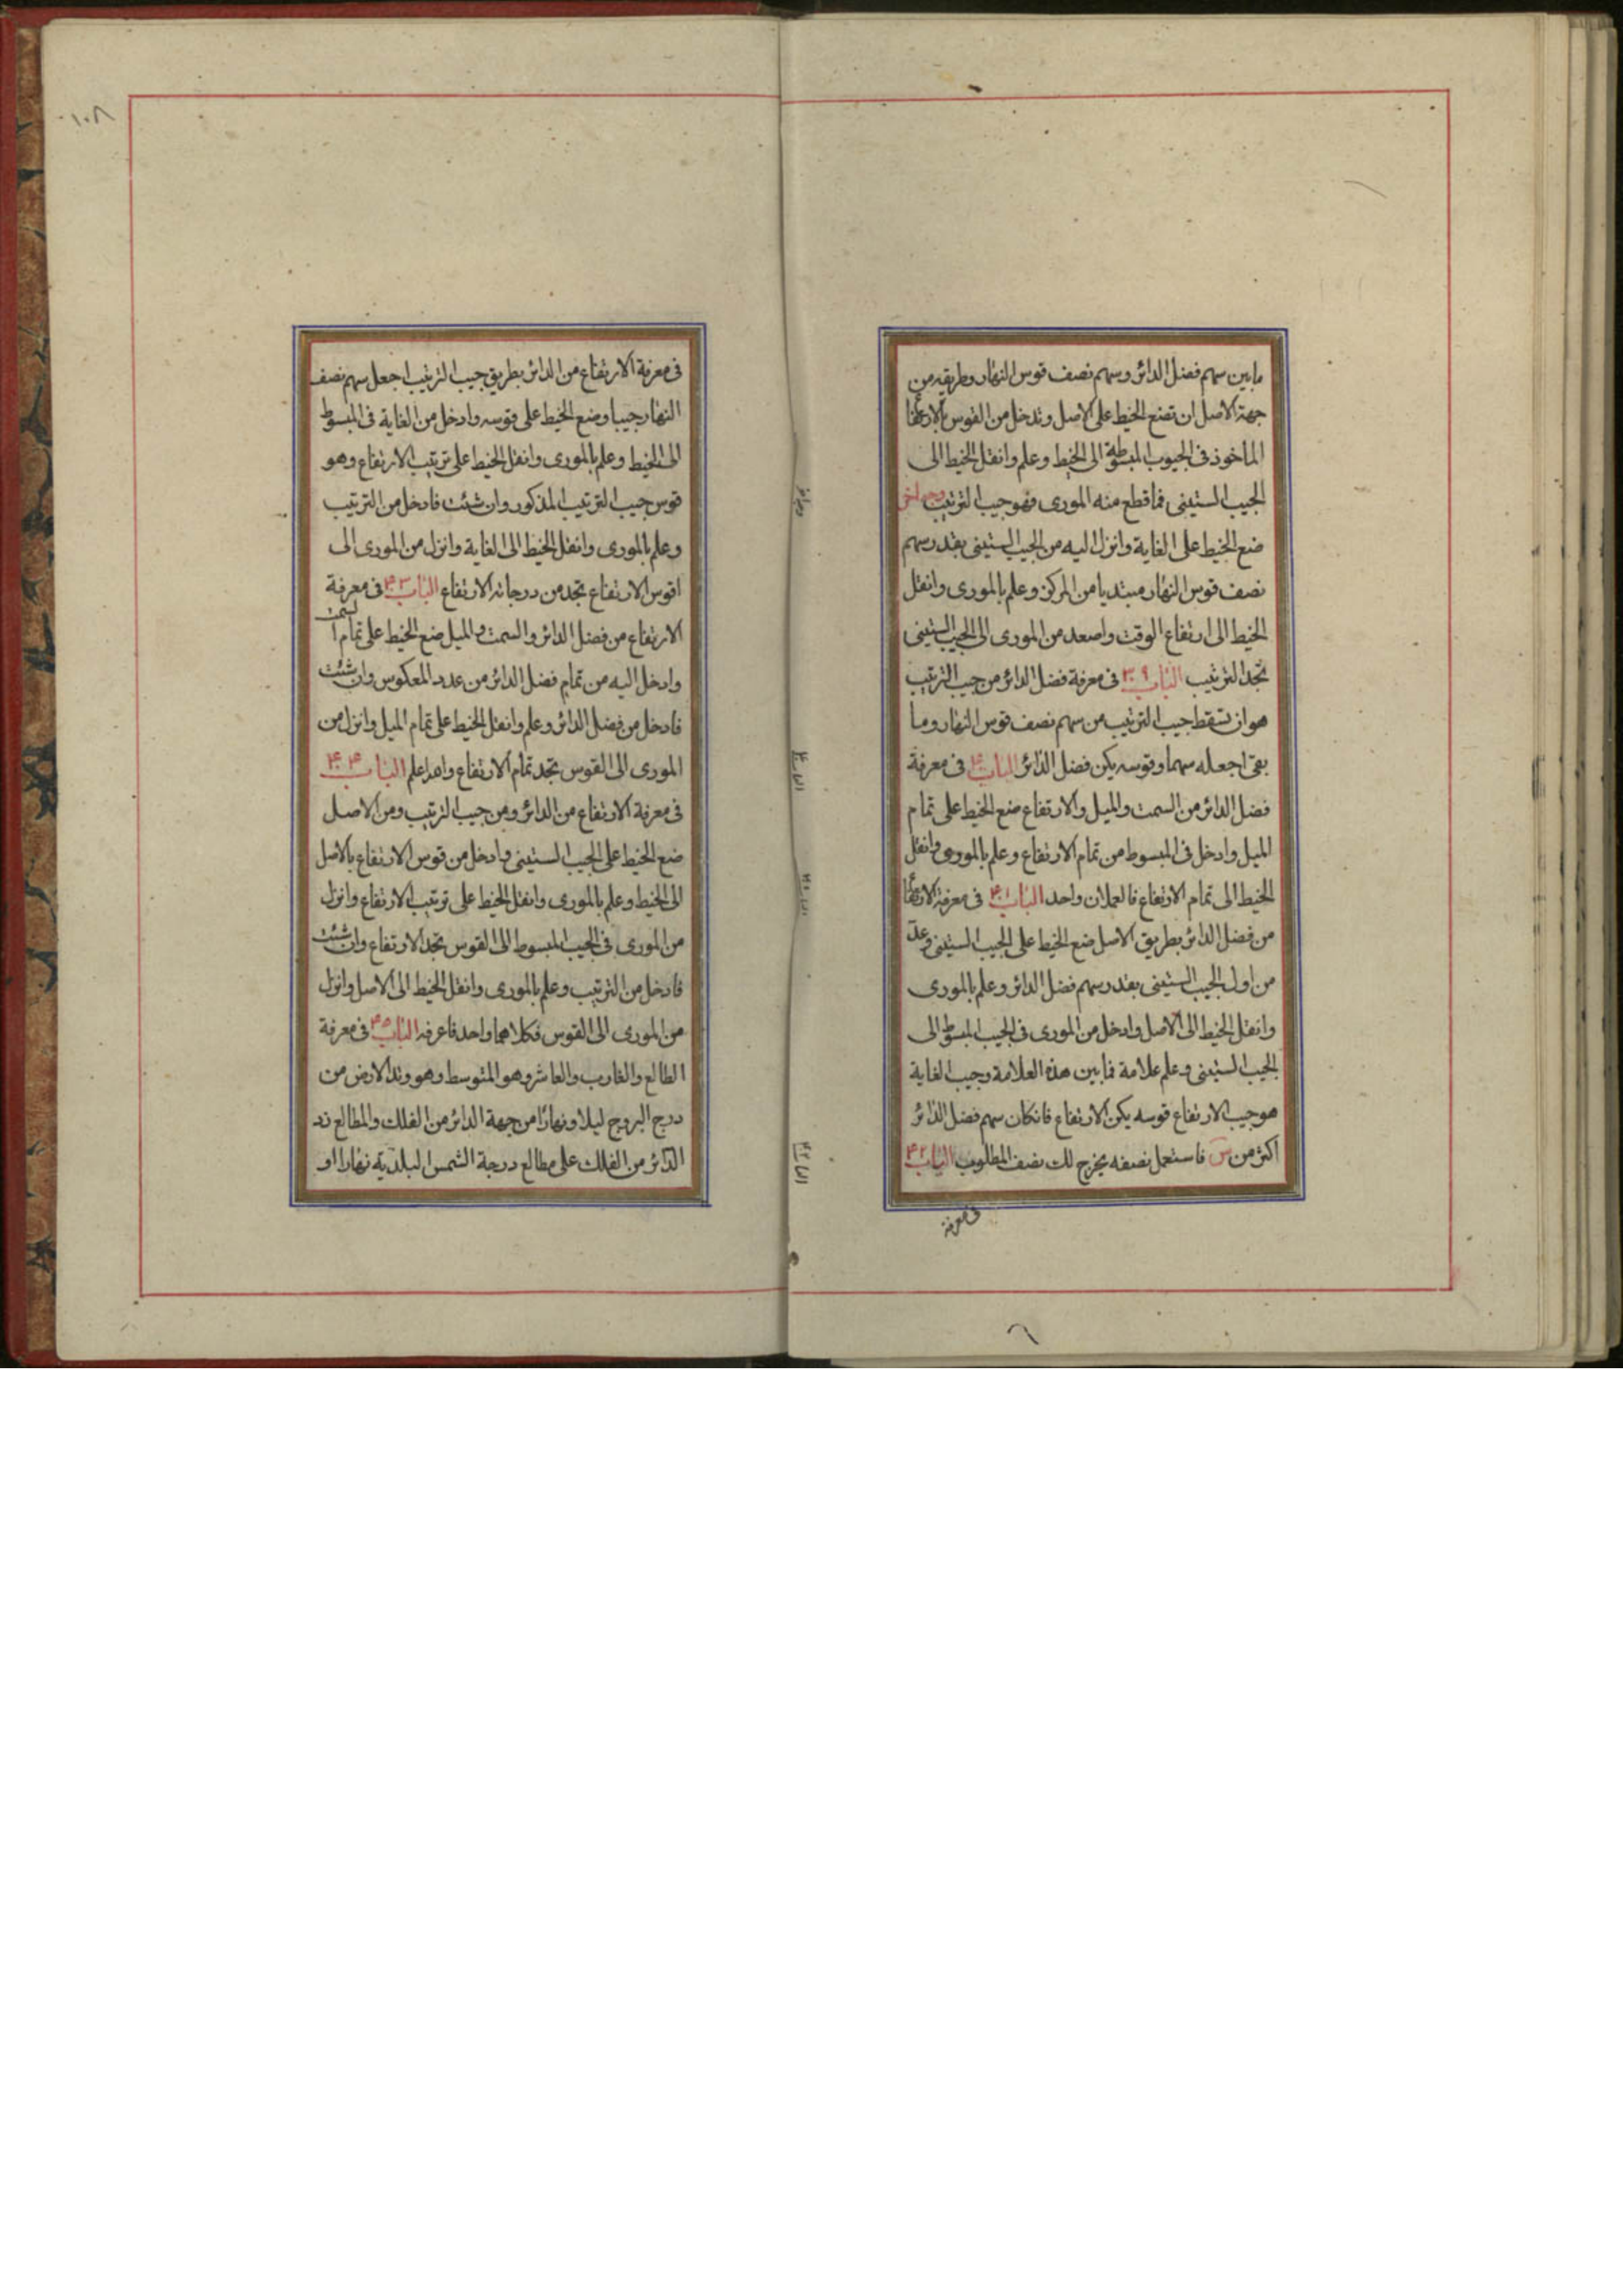 مابين سهم فضل الدائر وسهم نصف قوس النهار وطريقه من
جهة الاصل ان تضع الخيط على الاصل وتدخل من القوس بالارتفا
الماخوذ فى الجيوب المبسوطة الى الخيط وعلم وانقل الخيط الى
الجيب الستينى فما قطع منه المورى فهو جيب الترتيب وجه اخر
ضع الخيط على الغاية وانزل اليه من الجيب الستينى بقدر سهم
نصف قوس النهار مبتديا من المركز وعلم بالمورى وانقل
الخيط الى ارتفاع الوقت واصعد من المورى الى الجيب الستينى
تجد الترتيب الباب ٣٩ فى معرفة فضل الدائر من جيب الترتيب
هو ان تسقط جيب الترتيب من سهم نصف قوس النهار وما
بقى اجعله سهما وقوسه يكن فضل الدائر الباب ۴۰ فى معرفة
فضل الدائر من السمت والميل والارتفاع ضع الخيط على تمام
الميل وادخل فى المبسوط من تمام الارتفاع وعلم بالمورى وانقل
الخيط الى تمام الارتفاع فالعملان واحد الباب ۴۱ فى معرفة الارتفا
من فضل الدائر بطريق الاصل ضع الخيط على الجيب الستينى وعد
من اول الجيب الستينى بقدر سهم فضل الدائر وعلم بالمورى
وانقل الخيط الى الاصل وادخل من المورى فى الجيب المبسوط الى
الجيب الستينى وعلم علامة فما بين هذه العلامة وجيب الغاية
هو جيب الارتفاع قوسه يكن الارتفاع فانكان سهم فضل الدائر
اكثر من س فاستعمل نصفه يخرج لك نصف المطلوب الباب ۴۲
فى معرفة
١٠٨
فى معرفة الارتفاع من الدائر بطريق جيب الترتيب اجعل سهم نصف
النهار جيبا وضع الخيط على قوسه وادخل من الغاية فى المبسوط
الى الخيط وعلم بالمورى وانقل الخيط على ترتيب الارتفاع وهو
قوس جيب الترتيب المذكور وان شئت فادخل من الترتيب
وعلم بالمورى وانقل الخيط الى الغاية وانزل من المورى الى
اقوس الارتفاع تجد من درجاته الارتفاع الباب ۴۳ فى معرفة
الارتفاع من فضل الدائر والسمت والميل ضع الخيط على تمام السمت
وادخل اليه من تمام فضل الدائر من عدد المعكوس وان شئت
فادخل من فضل الدائر وعلم وانقل الخيط على تمام الميل وانزل من
المورى الى القوس تجد تمام الارتفاع واهدا علم الباب ۴۴
فى معرفة الارتفاع من الدائر ومن جيب الترتيب ومن الاصل
ضع الخيط على الجيب الستينى وادخل من قوس الارتفاع بالاصل
الى الخيط وعلم بالمورى وانقل الخيط على ترتيب الارتفاع وانزل
من المورى فى الجيب المبسوط الى القوس تجد الارتفاع وان شئت
فادخل من الترتيب وعلم بالمورى وانقل الخيط الى الاصل وانزل
من المورى الى القوس فكلاهما واحد فاعرفه الباب ۴۵ فى معرفة
الطالع والغارب والعاشر وهو المتوسط وهو وتد الارض من
درج البروج ليلا ونهارًا من جهة الدائر من الفلك والمطالع زد
الدائر من الفلك على مطالع درجة الشمس البلدية نهارا او